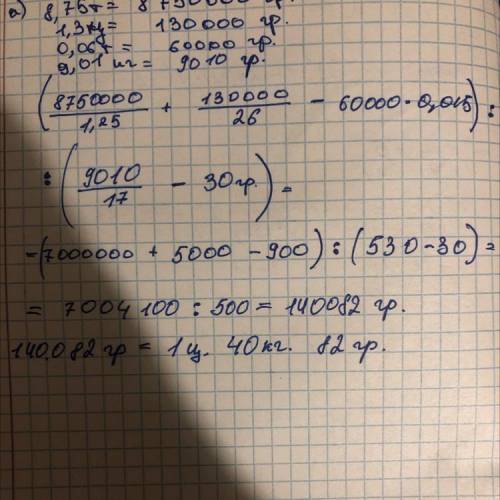 а) 8,75т = 8750000 гр.
1,3ц = 130000 гр.
0,06т = 60000 гр.
9,01 кг = 9010 гр.
(8750000/1,25 + 130000/26 - 60000·0,015) :
: (9010/17 - 30гр.) =
=(7000000 + 5000 - 900) : (530-30) =
= 7004100 : 500 = 140082 гр.
140.082 гр = 1ц. 40кг. 82 гр.